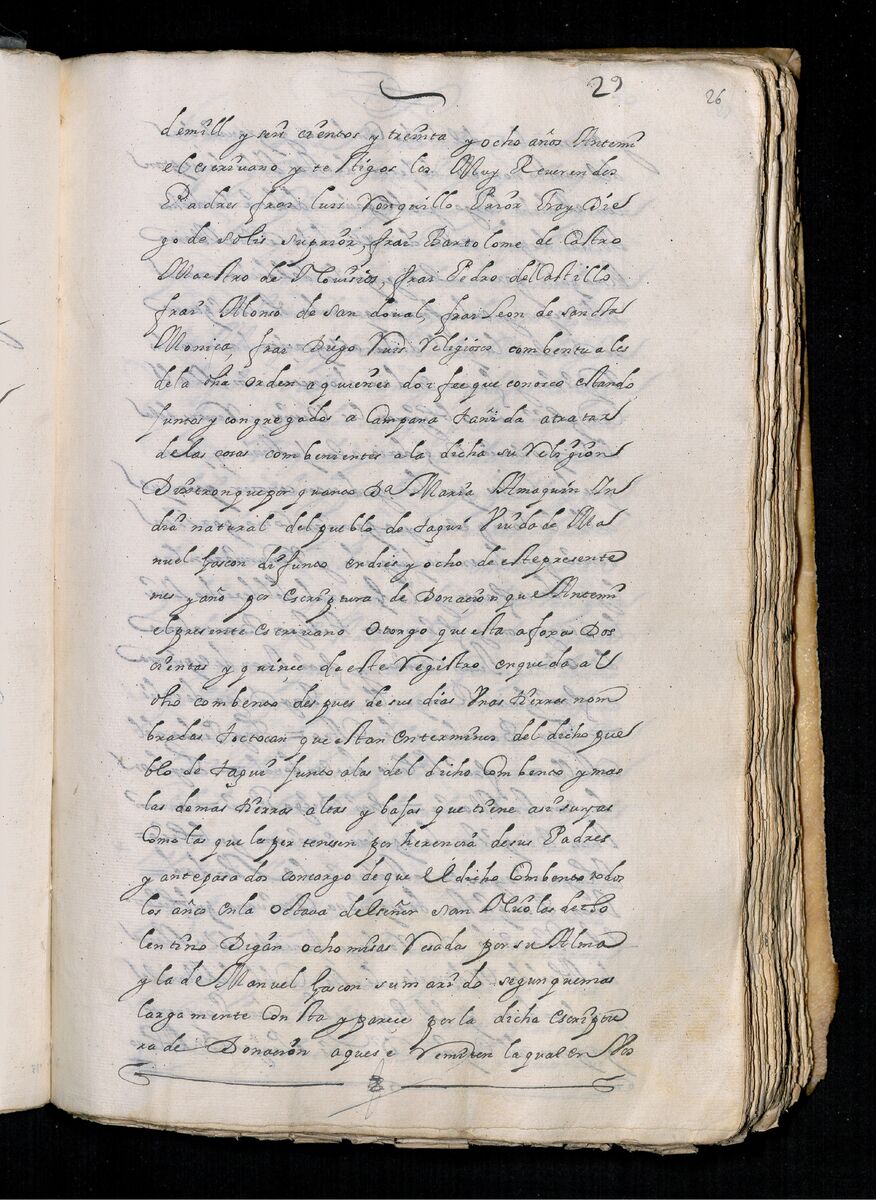 29
26
demill y seis cientos y treinta y ocho años Antemi
el escriuano y testigos los Muy Reuerendos
Padres frai luis Ronquillo Prior Fray Die
go de solis suprior, frai Bartolome de Castro
Maestro de Nouisios, frai Pedro del Castillo
frai Alonso de san doual, frai Leon de sancta
Monica, frai Diego Ruis Religiosos combentuales
dela dha orden a quienes doi fee que conosco estando
Juntos y congregados a Campana tañida atratar
delas cosas combenientes a la dicha su Religion
Dixeron que por quanto Da Maria Amaquin In
dia natural del pueblo de taguí Viuda de Ma
nuel Gascon difunto en dies y ocho de este presente
mes y año por escriptura de Donacion que Antemi
el presente escriuano otorgo que esta a foxas Dos
cientas y quince de este Registro en que da al
dho combento despues de sus dias Unas tierras nom
bradas toctocan que estan en terminos del dicho pue
blo de taguí Junto a las del dicho Combento y mas
las demas tierras altas y bajas que tiene asi suyas
Como las que le pertenesen por herencia de sus Padres
y antepasados con cargo de que El dicho Combento todos
los año en la octaua del señor san Nicolas de tho
lentino Digan ocho misas Resadas por su Alma
y la de Manuel Gascon su marido segun que mas
largamente consta y parece por la dicha escriptu
ra de Donacion a que se Remiten la qual en Nos